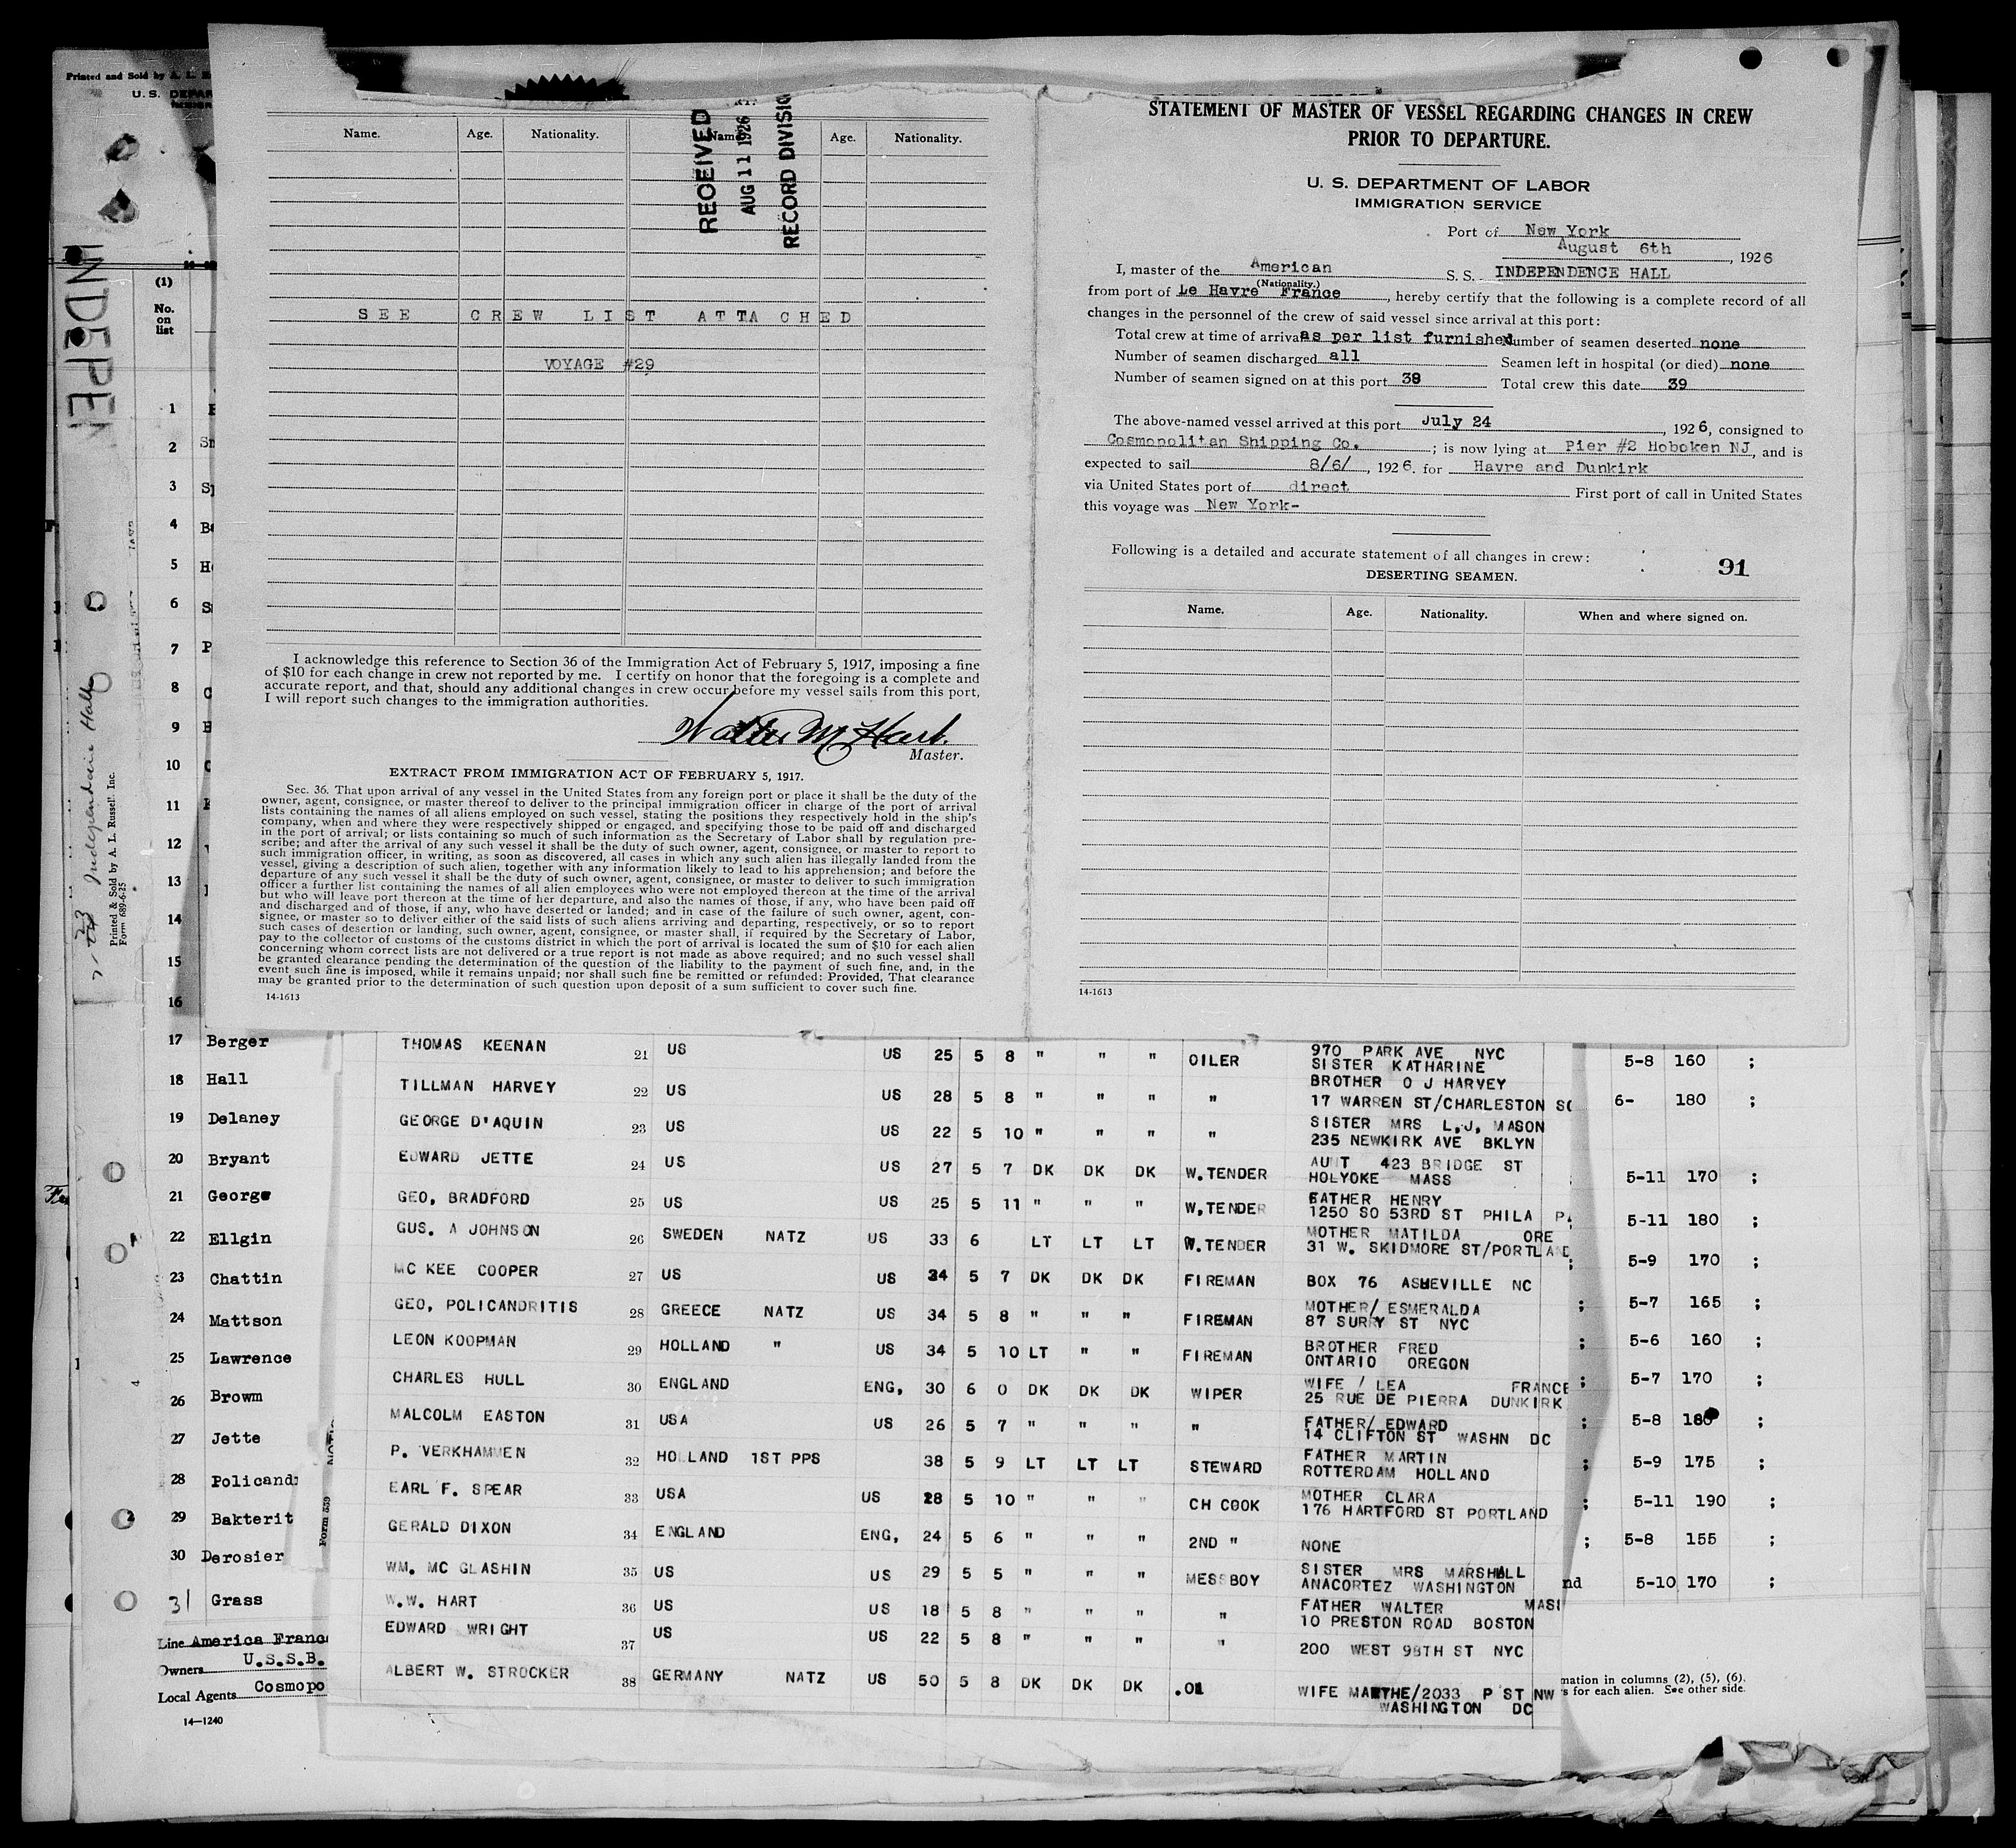 Printed and Sold by A. L.
U. S. DEPAR
INDEPEN
7-23 Independence Hall
Printed & Sold by A. L. Russell, Inc.
Form 689-6-25
(1)
No. on list
Name. Age. Nationality. Name. Age. Nationality.
RECEIVED
AUG 11 1926
RECORD DIVISIO
SEE CREW LIST ATTACHED
VOYAGE #29
I acknowledge this reference to Section 36 of the Immigration Act of February 5, 1917, imposing a fine
of $10 for each change in crew not reported by me. I certify on honor that the foregoing is a complete and
accurate report, and that, should any additional changes in crew occur before my vessel sails from this port,
I will report such changes to the immigration authorities.
Walter M Hart.
Master.
EXTRACT FROM IMMIGRATION ACT OF FEBRUARY 5, 1917.
Sec. 36. That upon arrival of any vessel in the United States from any foreign port or place it shall be the duty of the
owner, agent, consignee, or master thereof to deliver to the principal immigration officer in charge of the port of arrival
lists containing the names of all aliens employed on such vessel, stating the positions they respectively hold in the ship's
company, when and where they were respectively shipped or engaged, and specifying those to be paid off and discharged
in the port of arrival; or lists containing so much of such information as the Secretary of Labor shall by regulation pre-
scribe; and after the arrival of any such vessel it shall be the duty of such owner, agent, consignee, or master to report to
such immigration officer, in writing, as soon as discovered, all cases in which any such alien has illegally landed from the
vessel, giving a description of such alien, together with any information likely to lead to his apprehension; and before the
departure of any such vessel it shall be the duty of such owner, agent, consignee, or master to deliver to such immigration
officer a further list containing the names of all alien employees who were not employed thereon at the time of the arrival
but who will leave port thereon at the time of her departure, and also the names of those, if any, who have been paid off
and discharged and of those, if any, who have deserted or landed; and in case of the failure of such owner, agent, con-
signee, or master so to deliver either of the said lists of such aliens arriving and departing, respectively, or so to report
such cases of desertion or landing, such owner, agent, consignee, or master shall, if required by the Secretary of Labor,
pay to the collector of customs of the customs district in which the port of arrival is located the sum of $10 for each alien
concerning whom correct lists are not delivered or a true report is not made as above required; and no such vessel shall
be granted clearance pending the determination of the question of the liability to the payment of such fine, and, in the
event such fine is imposed, while it remains unpaid; nor shall such fine be remitted or refunded: Provided, That clearance
may be granted prior to the determination of such question upon deposit of a sum sufficient to cover such fine.
14-1613
STATEMENT OF MASTER OF VESSEL REGARDING CHANGES IN CREW
PRIOR TO DEPARTURE.
U. S. DEPARTMENT OF LABOR
IMMIGRATION SERVICE
Port of New York
August 6th, 1926
I, master of the American S. S. INDEPENDENCE HALL
(Nationality.)
from port of Le Havre France, hereby certify that the following is a complete record of all
changes in the personnel of the crew of said vessel since arrival at this port:
Total crew at time of arrival as per list furnished Number of seamen deserted none
Number of seamen discharged all Seamen left in hospital (or died) none
Number of seamen signed on at this port 38 Total crew this date 39
The above-named vessel arrived at this port July 24, 1926, consigned to
Cosmopolitan Shipping Co.; is now lying at Pier #2 Hoboken NJ, and is
expected to sail 8/6/, 1926. for Havre and Dunkirk
via United States port of direct First port of call in United States
this voyage was New York-
Following is a detailed and accurate statement of all changes in crew:
91
DESERTING SEAMEN.
Name. Age. Nationality. When and where signed on.
14-1613
1
2 Sn
3 Sp
4
5 H
6 S
7 P
8
9
10
11
12
13
14
15
16
17 Berger
18 Hall
19 Delaney
20 Bryant
21 George
22 Ellgin
23 Chattin
24 Mattson
25 Lawrence
26 Browm
27 Jette
28 Policand
29 Bakterit
30 Derosier
31 Grass
Line America Franc
Owners U.S.S.B.
Local Agents Cosmopo
14-1240
Form 559
THOMAS KEENAN 21 US US 25 5 8 " " " OILER 970 PARK AVE NYC
SISTER KATHARINE
TILLMAN HARVEY 22 US US 28 5 8 " " " " BROTHER O J HARVEY
17 WARREN ST/CHARLESTON SC
GEORGE D'AQUIN 23 US US 22 5 10 " " " " SISTER MRS L.J. MASON
235 NEWKIRK AVE BKLYN
EDWARD JETTE 24 US US 27 5 7 DK DK DK W.TENDER AUNT 423 BRIDGE ST
HOLYOKE MASS
GEO. BRADFORD 25 US US 25 5 11 " " " W.TENDER FATHER HENRY
1250 SO 53RD ST PHILA PA
GUS. A JOHNSON 26 SWEDEN NATZ US 33 6 LT LT LT W.TENDER MOTHER MATILDA ORE
31 W. SKIDMORE ST/PORTLAND
MC KEE COOPER 27 US US 24 5 7 DK DK DK FIREMAN BOX 76 ASHEVILLE NC
GEO. POLICANDRITIS 28 GREECE NATZ US 34 5 8 " " " FIREMAN MOTHER/ ESMERALDA
87 SURRY ST NYC
LEON KOOPMAN 29 HOLLAND " US 34 5 10 LT " " FIREMAN BROTHER FRED
ONTARIO OREGON
CHARLES HULL 30 ENGLAND ENG. 30 6 0 DK DK DK WIPER WIFE / LEA FRANCE
25 RUE DE PIERRA DUNKIRK
MALCOLM EASTON 31 USA US 26 5 7 " " " " FATHER/ EDWARD
14 CLIFTON ST WASHN DC
P. VERKHAMMEN 32 HOLLAND 1ST PPS 38 5 9 LT LT LT STEWARD FATHER MARTIN
ROTTERDAM HOLLAND
EARL F. SPEAR 33 USA US 28 5 10 " " " CH COOK MOTHER CLARA
176 HARTFORD ST PORTLAND
GERALD DIXON 34 ENGLAND ENG. 24 5 6 " " " 2ND " NONE
WM. MC GLASHIN 35 US US 29 5 5 " " " MESSBOY SISTER MRS MARSHALL
ANACORTEZ WASHINGTON
W.W. HART 36 US US 18 5 8 " " " " FATHER WALTER MASS
10 PRESTON ROAD BOSTON
EDWARD WRIGHT 37 US US 22 5 8 " " " " 200 WEST 98TH ST NYC
ALBERT W. STROCKER 38 GERMANY NATZ US 50 5 8 DK DK DK .01 WIFE MARTHE/2033 P ST NW
WASHINGTON DC
5-8 160 ;
6- 180 ;
5-11 170 ;
5-11 180 ;
5-9 170 ;
5-7 165 ;
5-6 160 ;
5-7 170 ;
5-8 180 ;
5-9 175 ;
5-11 190 ;
5-8 155 ;
nd 5-10 170 ;
mation in columns (2), (5), (6).
s for each alien. See other side.